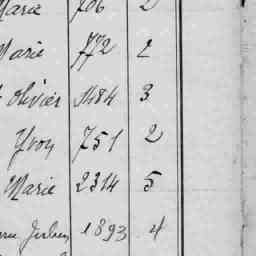 Marie 706 2
Marie 772 2
Olivier 1484 3
Yvon 751 2
Marie 2314 5
1893 4